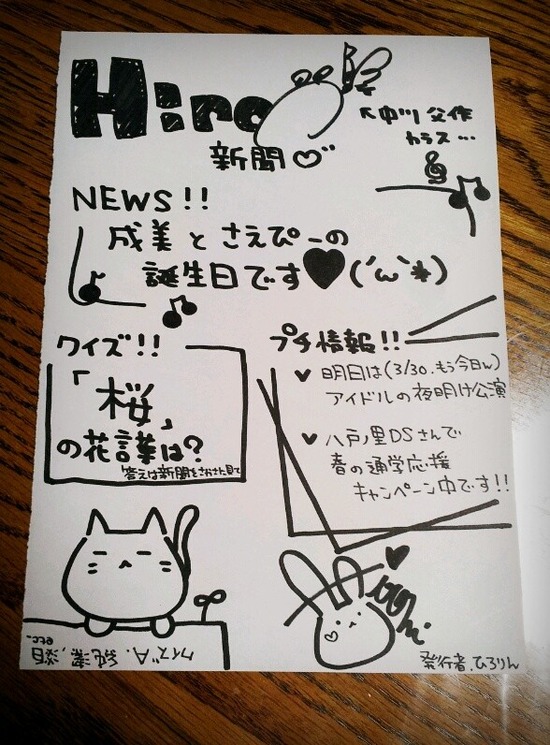 Hiro
新聞♡
↖中川父作
カラス…
NEWS!!
成美とさえぴーの
誕生日です♥(´ω`*)
クイズ!!
「桜」
の花言葉は?
答えは新聞をさかさに見て
プチ情報!!
♥明日は(3/30.もう今日w)
アイドルの夜明け公演
♥八戸ノ里DSさんで
春の通学応援
キャンペーン中です!!
クイズA.純潔,淡泊
etc..
発行者.ひろりん